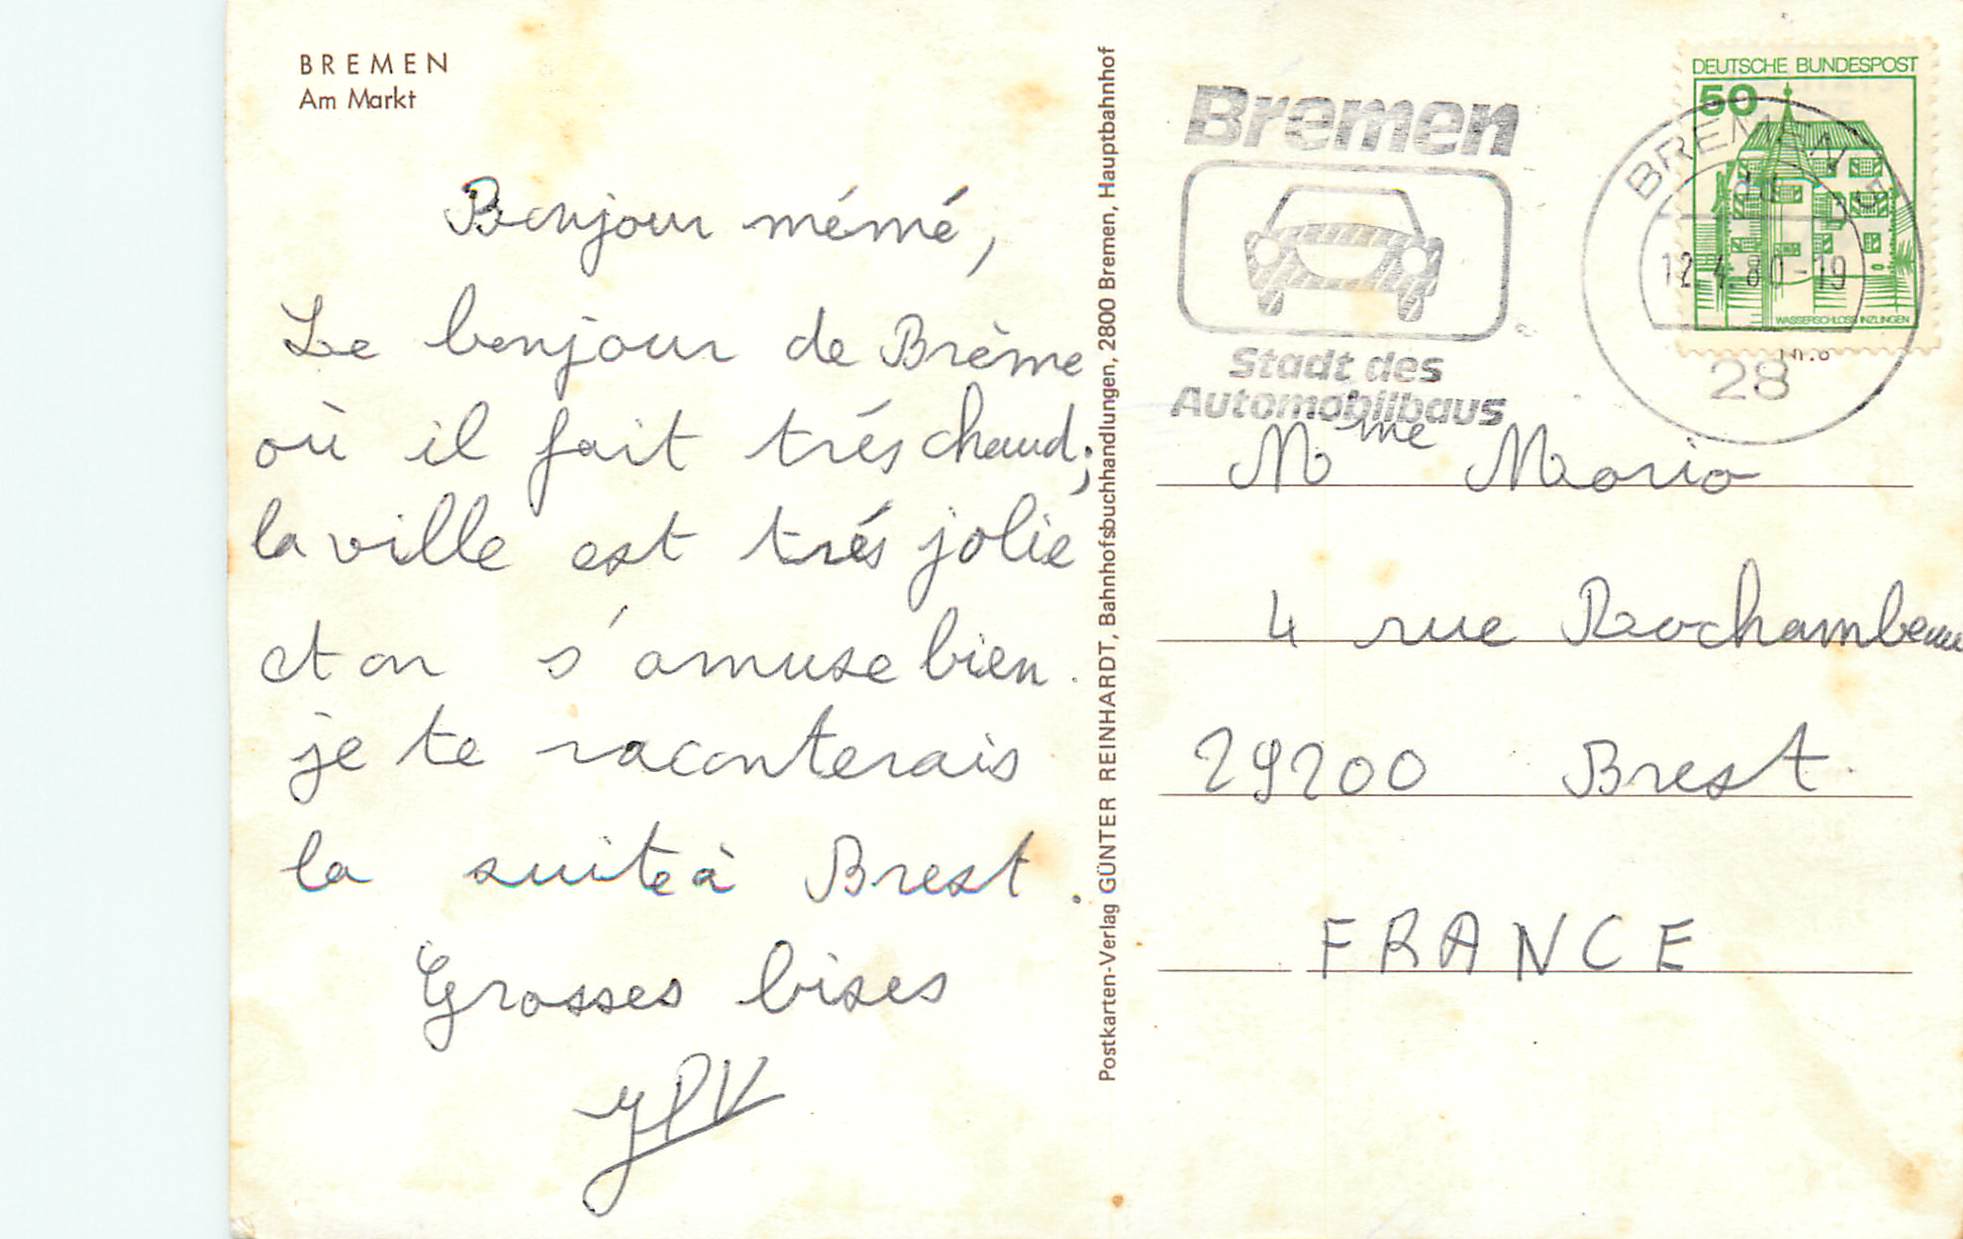 BREMEN
Am Markt
Bonjour mémé,
Le bonjour de Brème
où il fait trés chaud;
la ville est trés jolie
et on s'amuse bien.
je te raconterais
la suite à Brest.
Grosses bises
JPV
Postkarten-Verlag GÜNTER REINHARDT, Bahnhofsbuchhandlungen, 2800 Bremen, Hauptbahnhof
Bremen
Stadt des
Automobilbaus
DEUTSCHE BUNDESPOST
50
WASSERSCHLOSS INZLINGEN
BREMEN
12.4.80-19
28
Mme Morio
4 rue Rochambeau
29200 Brest.
FRANCE